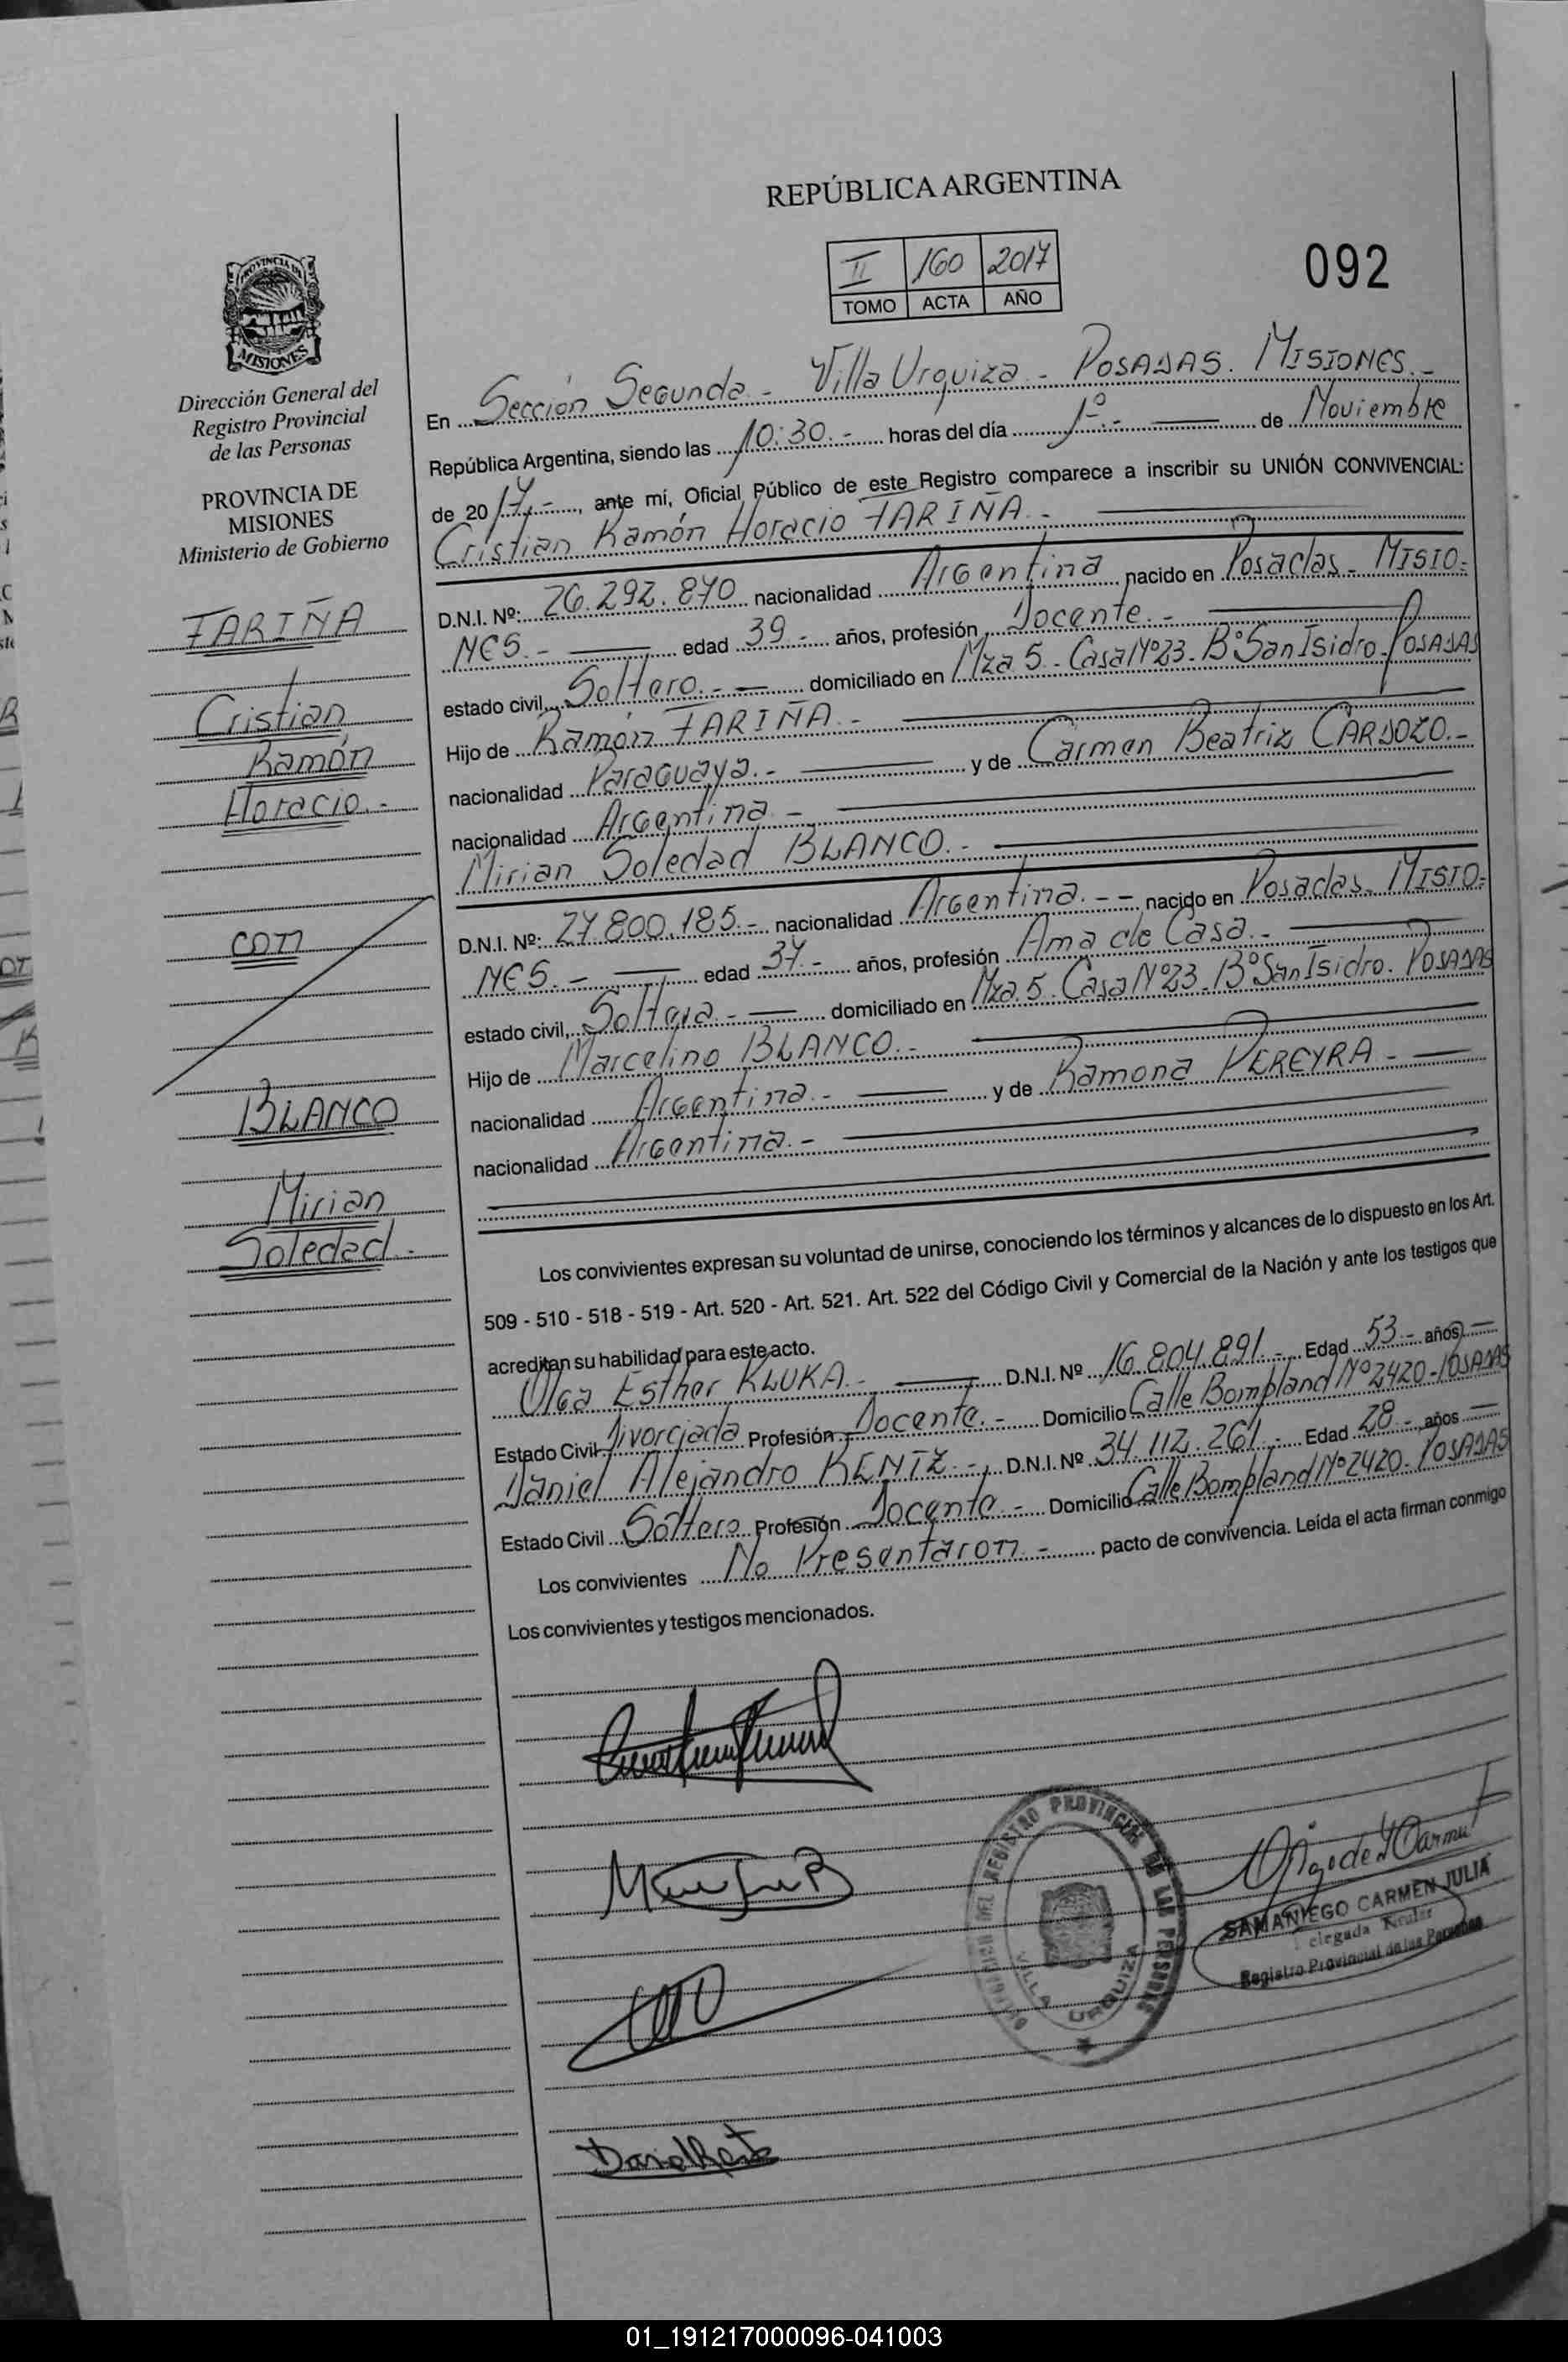 REPÚBLICA ARGENTINA
II 160 2017
TOMO ACTA AÑO
092
PROVINCIA DE
MISIONES
Dirección General del
Registro Provincial
de las Personas
PROVINCIA DE
MISIONES
Ministerio de Gobierno
FARIÑA
Cristian
Ramón
Horacio.-
con
BLANCO
Mirian
Soledad.-
En Sección Segunda.- Villa Urquiza - POSADAS. MISIONES.-
República Argentina, siendo las 10:30.- horas del día 1º.- de Noviembre
de 2017.-, ante mí, Oficial Público de este Registro comparece a inscribir su UNIÓN CONVIVENCIAL:
Cristian Ramón Horacio FARIÑA.-
D.N.I. Nº: 26.292.870 nacionalidad Argentina nacido en Posadas - MISIO-
NES.- edad 39.- años, profesión Docente.-
estado civil, Soltero.- domiciliado en Mza 5.- Casa Nº23- Bº San Isidro. POSADAS
Hijo de Ramón FARIÑA.-
nacionalidad Paraguaya.- y de Carmen Beatriz CARDOZO.-
nacionalidad Argentina.-
Mirian Soledad BLANCO.-
D.N.I. Nº: 27.800.185.- nacionalidad Argentina.-- nacido en Posadas. MISIO-
NES.- edad 37.- años, profesión Ama de Casa.-
estado civil, Soltera.- domiciliado en Mza. 5. Casa Nº23. Bº San Isidro. POSADAS
Hijo de Marcelino BLANCO.-
nacionalidad Argentina.- y de Ramona PEREYRA.-
nacionalidad Argentina.-
Los convivientes expresan su voluntad de unirse, conociendo los términos y alcances de lo dispuesto en los Art.
509 - 510 - 518 - 519 - Art. 520 - Art. 521. Art. 522 del Código Civil y Comercial de la Nación y ante los testigos que
acreditan su habilidad para este acto.
Olga Esther KLUKA.- D.N.I. Nº 16.804.891.- Edad 53.- años
Estado Civil Divorciada Profesión Docente.- Domicilio Calle Bompland Nº2420-POSADAS
Daniel Alejandro RENTZ.-, D.N.I. Nº 34.112.261.- Edad 28.- años
Estado Civil Soltero Profesión Docente.- Domicilio Calle Bompland Nº2420. POSADAS
Los convivientes No Presentaron.- pacto de convivencia. Leída el acta firman conmigo
Los convivientes y testigos mencionados.
REGISTRO PROVINCIAL DE LAS PERSONAS
VILLA URQUIZA
SAMANIEGO CARMEN JULIA
Registro Provincial de las Personas
01_191217000096-041003